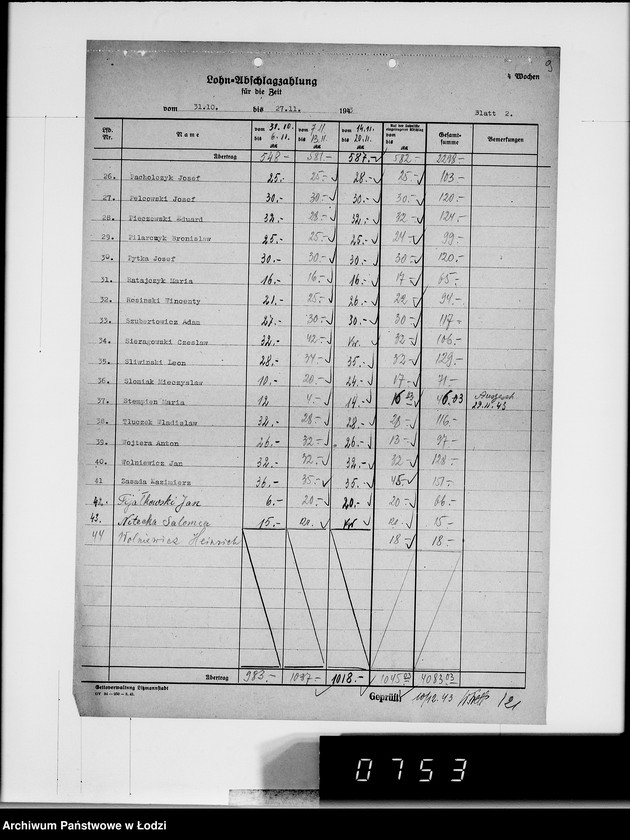 9
Lohn-Abschlagzahlung
4 Wochen
für die Zeit
vom 31.10. bis 27.11. 194 Blatt 2.
Lfd. Nr. Name vom 31.10. bis 6.11. vom 7.11 bis 13.11. vom 14.11. bis 20.11. vom bis Gesamt-summe Bemerkungen
Übertrag 548.- 581.- 587.- 582.- 2298.-
26. Pacholczyk Josef 25.- 25.- 28.- 25.- 103.-
27. Pelcowski Josef 30.- 30.- 30.- 30.- 120.-
28. Pieczewski Eduard 32.- 28.- 32.- 32.- 124.-
29. Pilarczyk Bronislaw 25.- 25.- 25.- 24.- 99.-
30. Pytka Josef 30.- 30.- 30.- 30.- 120.-
31. Ratajczyk Maria 16.- 16.- 16.- 17.- 65.-
32. Rosinski Wincenty 21.- 25.- 26.- 22.- 94.-
33. Szubertowicz Adam 27.- 30.- 30.- 30.- 117.-
34. Sieragowski Czeslaw 32.- 42.- Kr. 32.- 106.-
35. Sliwinski Leon 28.- 34.- 35.- 32.- 129.-
36. Slomiak Mieczyslaw 10.- 20.- 24.- 17.- 71.-
37. Stempien Maria 12.- 4.- 14.- 16.03 46.03
29.11.43
38. Tluczek Wladislaw 32.- 28.- 28.- 28.- 116.-
39. Wojtera Anton 26.- 32.- 26.- 13.- 97.-
40. Wolniewicz Jan 32.- 32.- 32.- 32.- 128.-
41 Zasada Kazimierz 36.- 35.- 35.- 45.- 151.-
42. Fijałkowski Jan 6.- 20.- 20.- 20.- 66.-
43. Nitecka Salomea 15.- 15.-
44 Wolniewicz Heinrich 18.- 18.-
Übertrag 983.- 1037.- 1018.- 1045.03 4083.03
Gettoverwaltung Litzmannstadt
Geprüft: 10/12.43
0753
Archiwum Państwowe w Łodzi